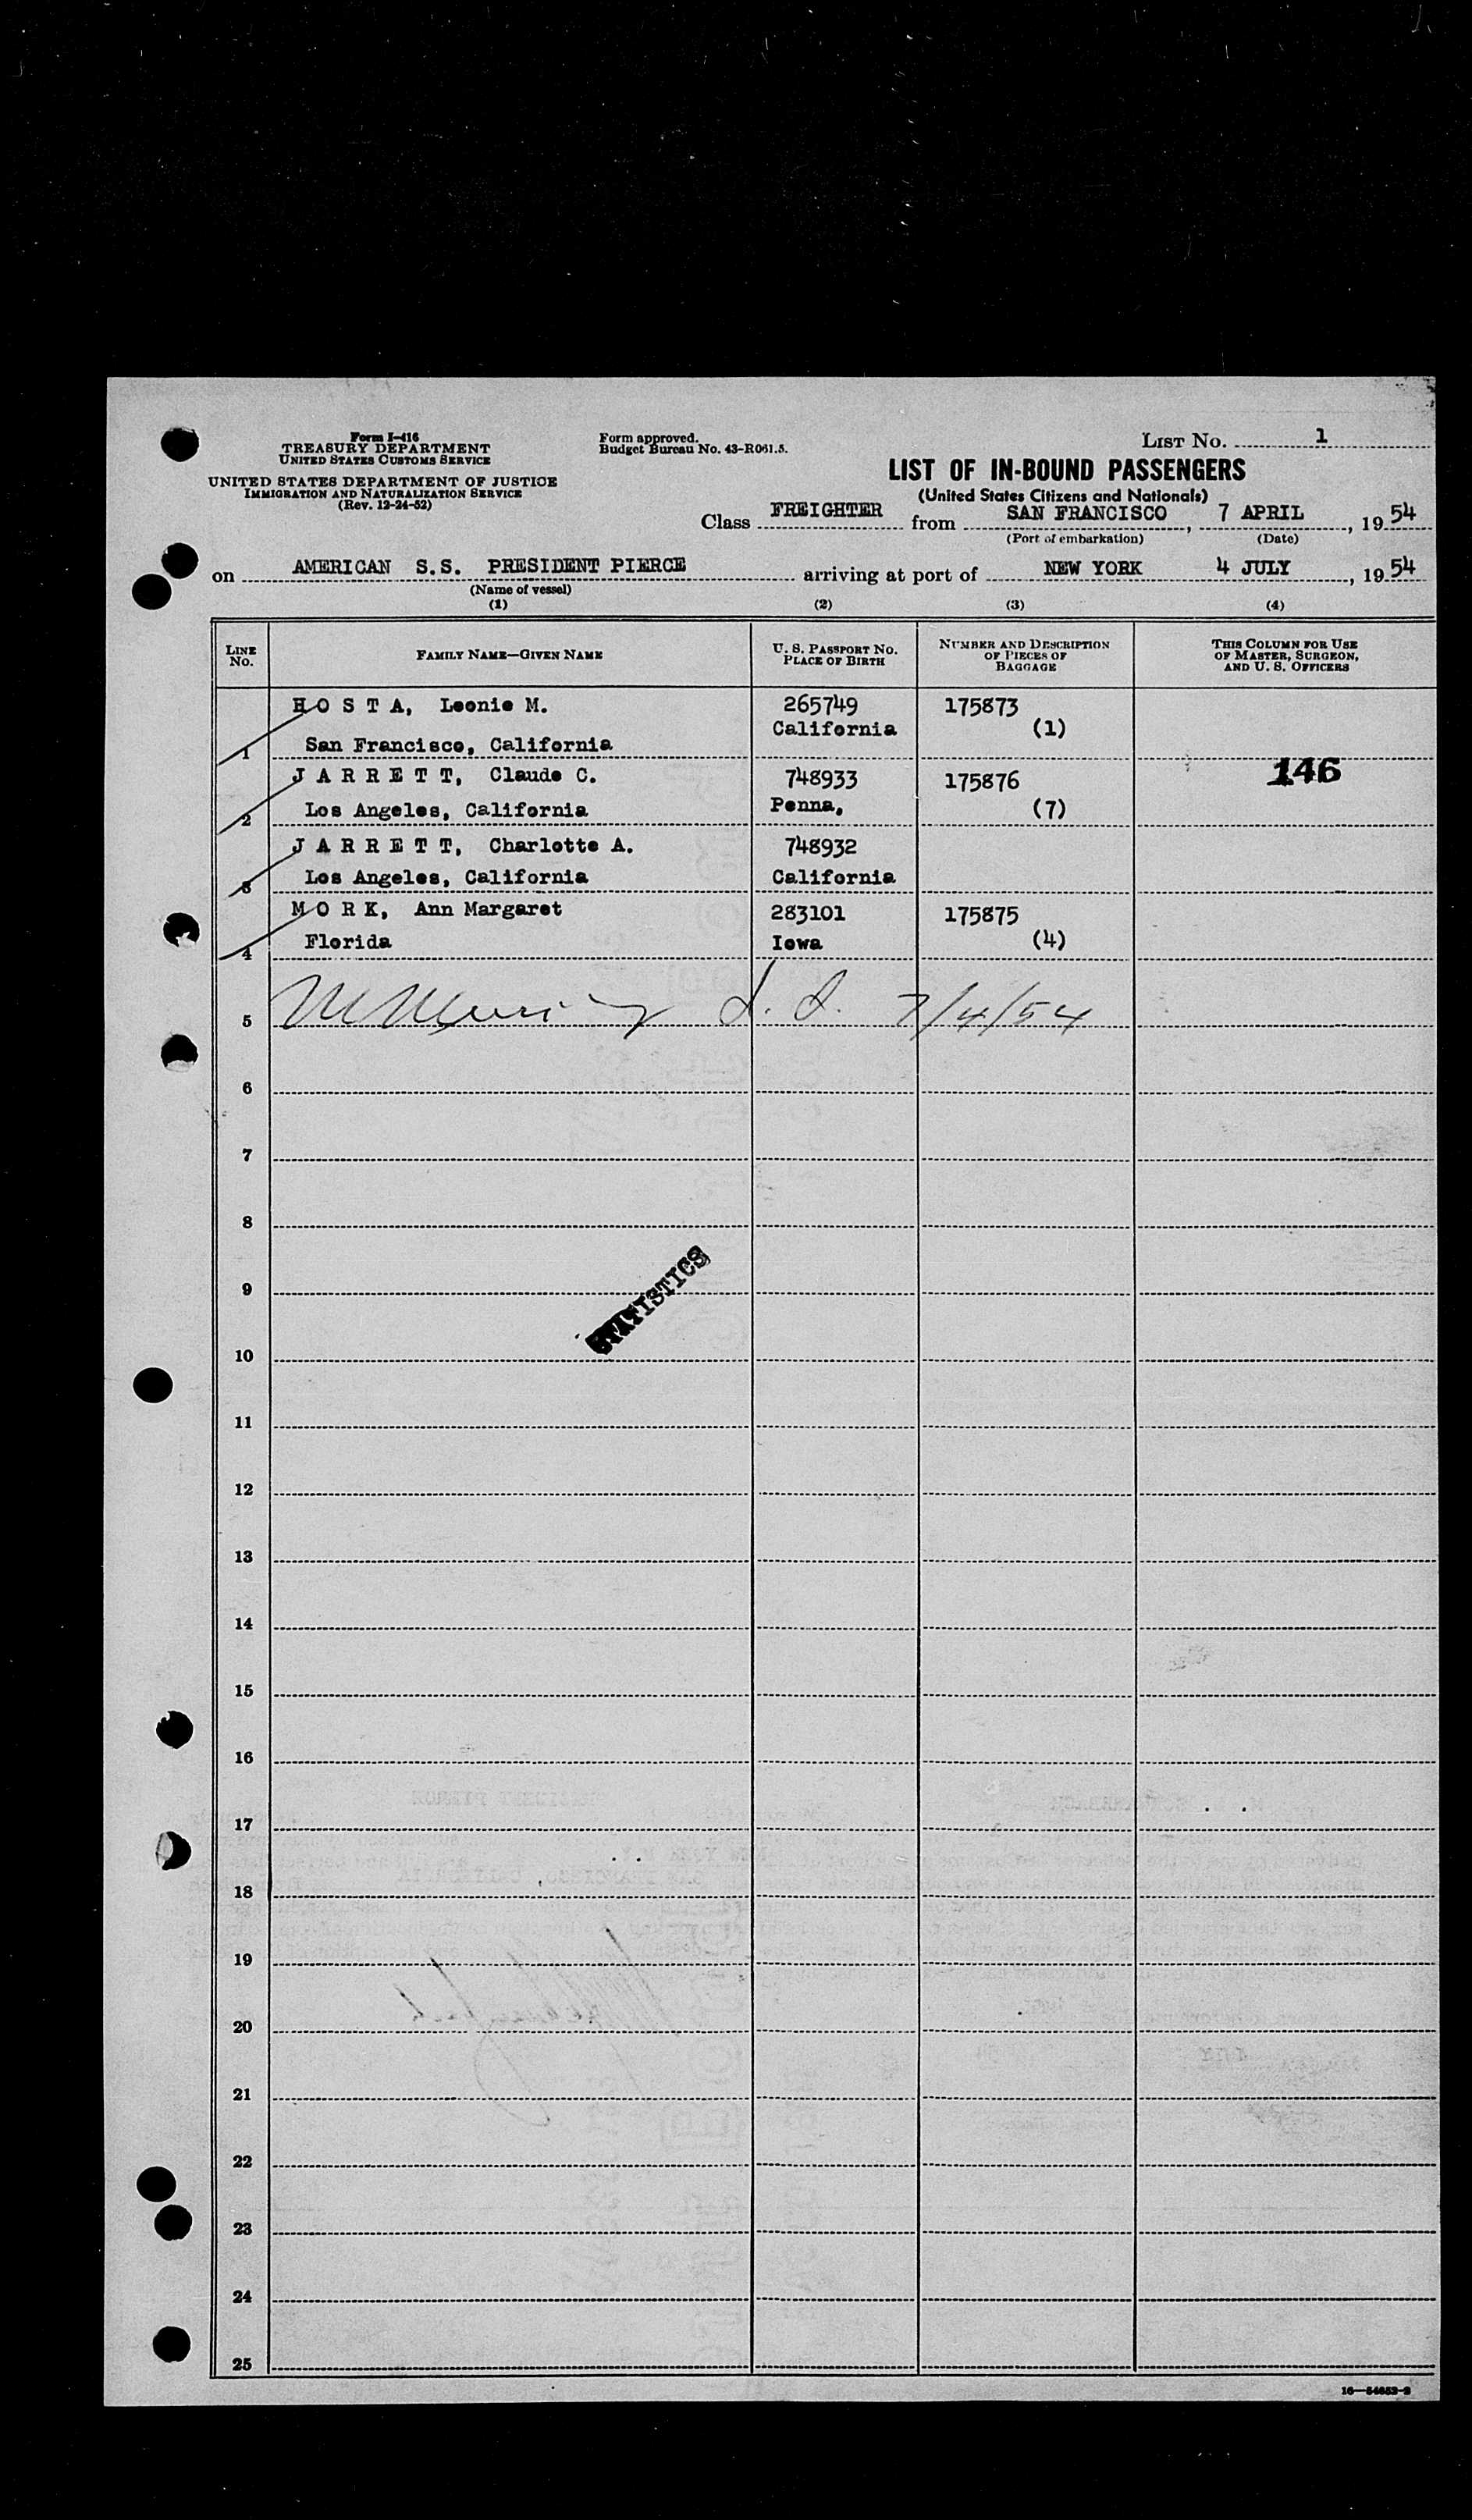 Form I-416
TREASURY DEPARTMENT
UNITED STATES CUSTOMS SERVICE
UNITED STATES DEPARTMENT OF JUSTICE
IMMIGRATION AND NATURALIZATION SERVICE
(Rev. 12-24-52)
Form approved.
Budget Bureau No. 43-R061.5.
LIST No. 1
LIST OF IN-BOUND PASSENGERS
(United States Citizens and Nationals)
Class FREIGHTER from SAN FRANCISCO, 7 APRIL, 1954
(Port of embarkation) (Date)
on AMERICAN S.S. PRESIDENT PIERCE arriving at port of NEW YORK 4 JULY, 1954
(Name of vessel)
(1) (2) (3) (4)
LINE No. FAMILY NAME—GIVEN NAME U. S. PASSPORT No. PLACE OF BIRTH NUMBER AND DESCRIPTION OF PIECES OF BAGGAGE THIS COLUMN FOR USE OF MASTER, SURGEON, AND U. S. OFFICERS
H O S T A, Leonie M. 265749 175873
California (1)
1 San Francisco, California
J A R R E T T, Claude C. 748933 175876 146
2 Los Angeles, California Penna, (7)
J A R R E T T, Charlotte A. 748932
3 Los Angeles, California California
M O R K, Ann Margaret 283101 175875
4 Florida Iowa (4)
5 7/4/54
6
7
8
9
STATISTICS
10
11
12
13
14
15
16
17
18
19
20
21
22
23
24
25